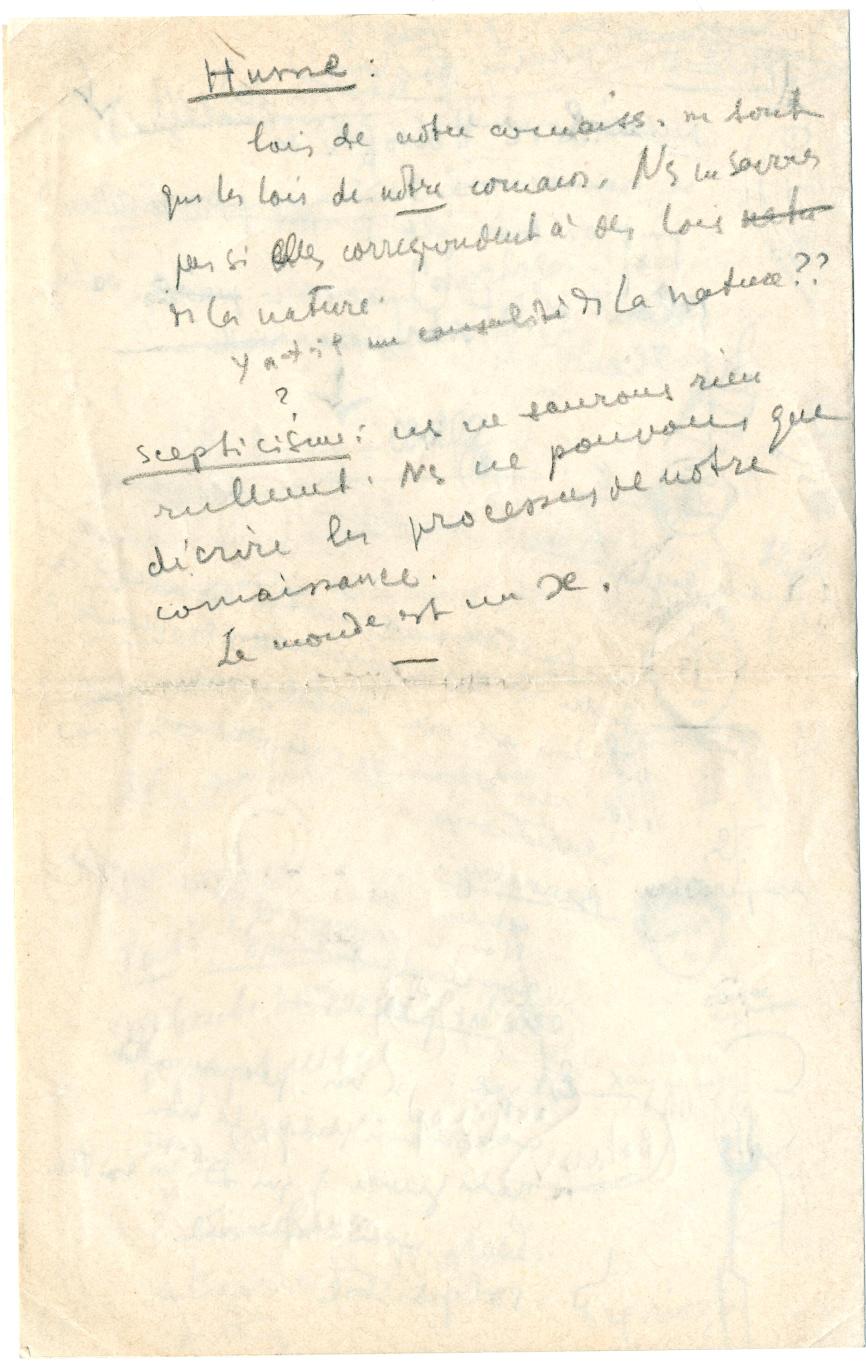 Hume :
lois de notre connaiss. ne sont
que les lois de notre connaiss. Ns ne savons
pas si elles correspondent à des lois natu
de la nature.
Y a-t-il une causalité de la nature ??
?
scepticisme : ns ne saurons rien
réellement. Ns ne pouvons que
décrire les processus de notre
connaissance.
Le monde est un x.